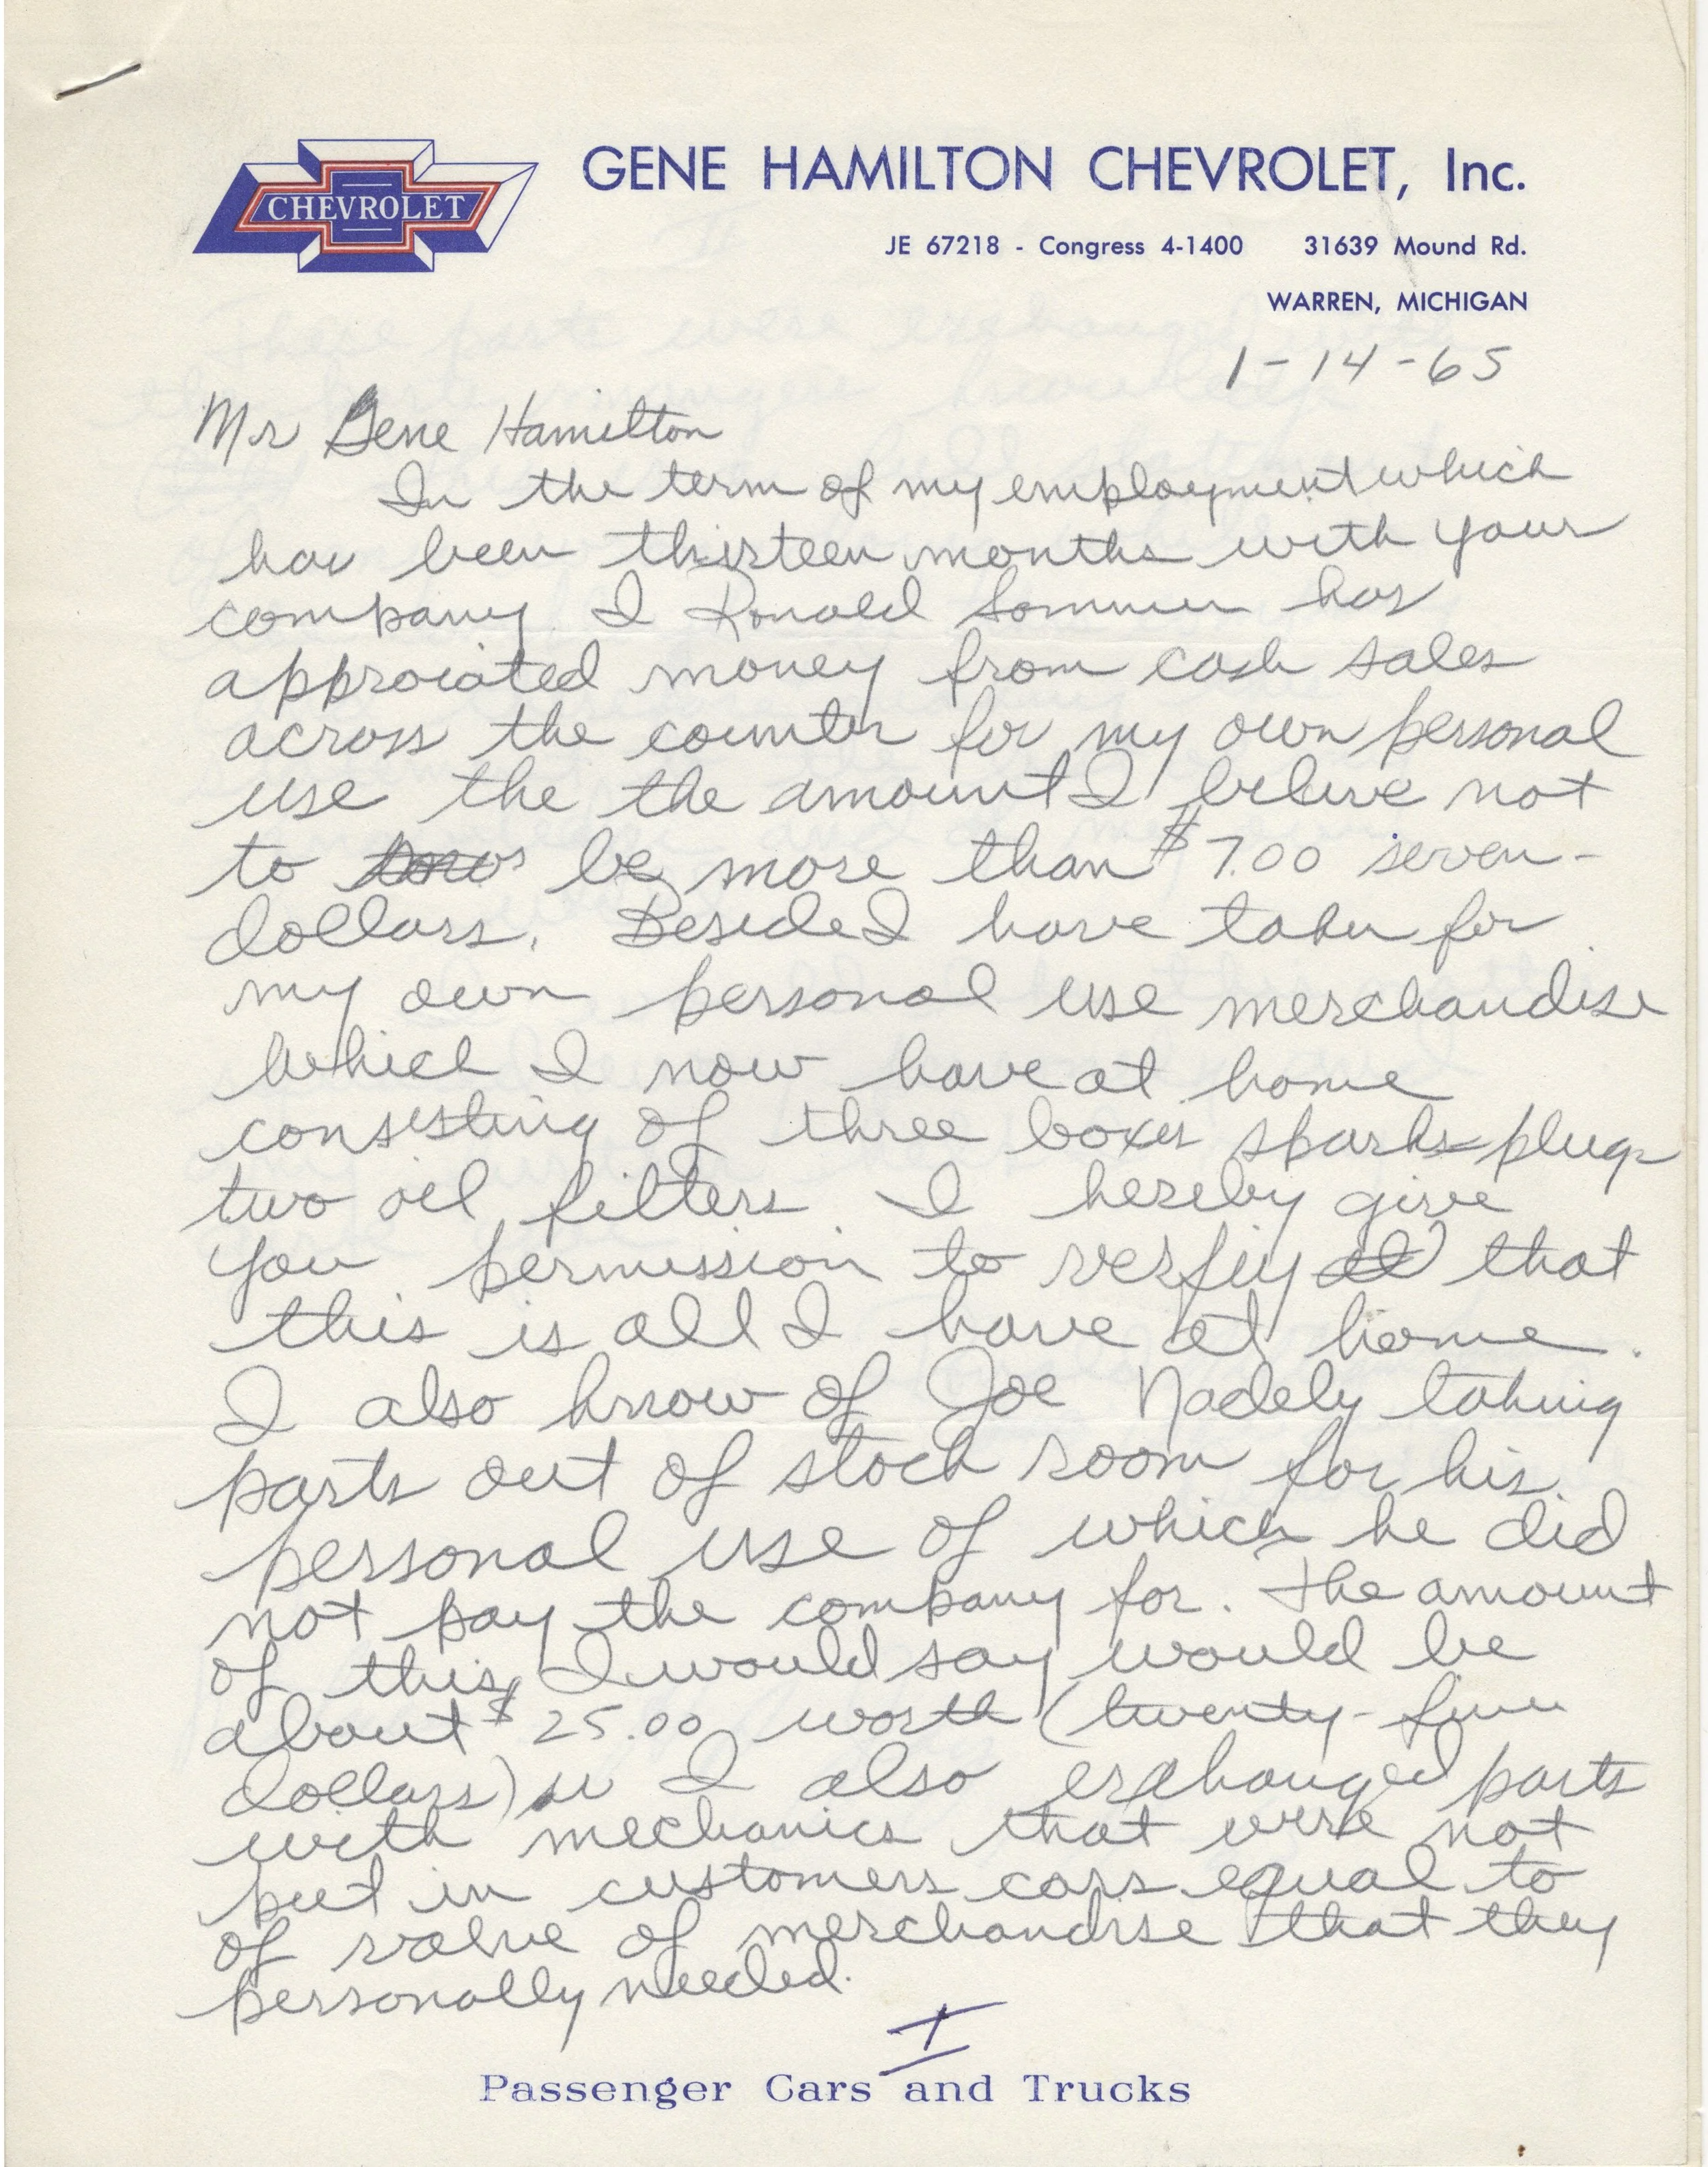 CHEVROLET
GENE HAMILTON CHEVROLET, Inc.
JE 67218 - Congress 4-1400 31639 Mound Rd.
WARREN, MICHIGAN
1-14-65
Mr Gene Hamilton
In the term of my employment which
has been thirteen months with your
company I Ronald Sommer has
approiated money from cash sales
across the counter for my own personal
use the the amount I belive not
to be more than $7.00 seven-
dollars. Beside I have taken for
my own personal use merchandise
which I now have at home
consisting of three boxes sparks plugs
two oil filters I hereby give
you permission to verfiy that
this is all I have at home.
I also know of Joe Nadely taking
parts out of stock room for his
personal use of which he did
not pay the company for. The amount
of this, I would say would be
about $25.00 worth (twenty-five
dollars) I also exchanged parts
with mechanics that were not
put in customers cars equal to
of value of merchandise that they
personally needed.
I
Passenger Cars and Trucks